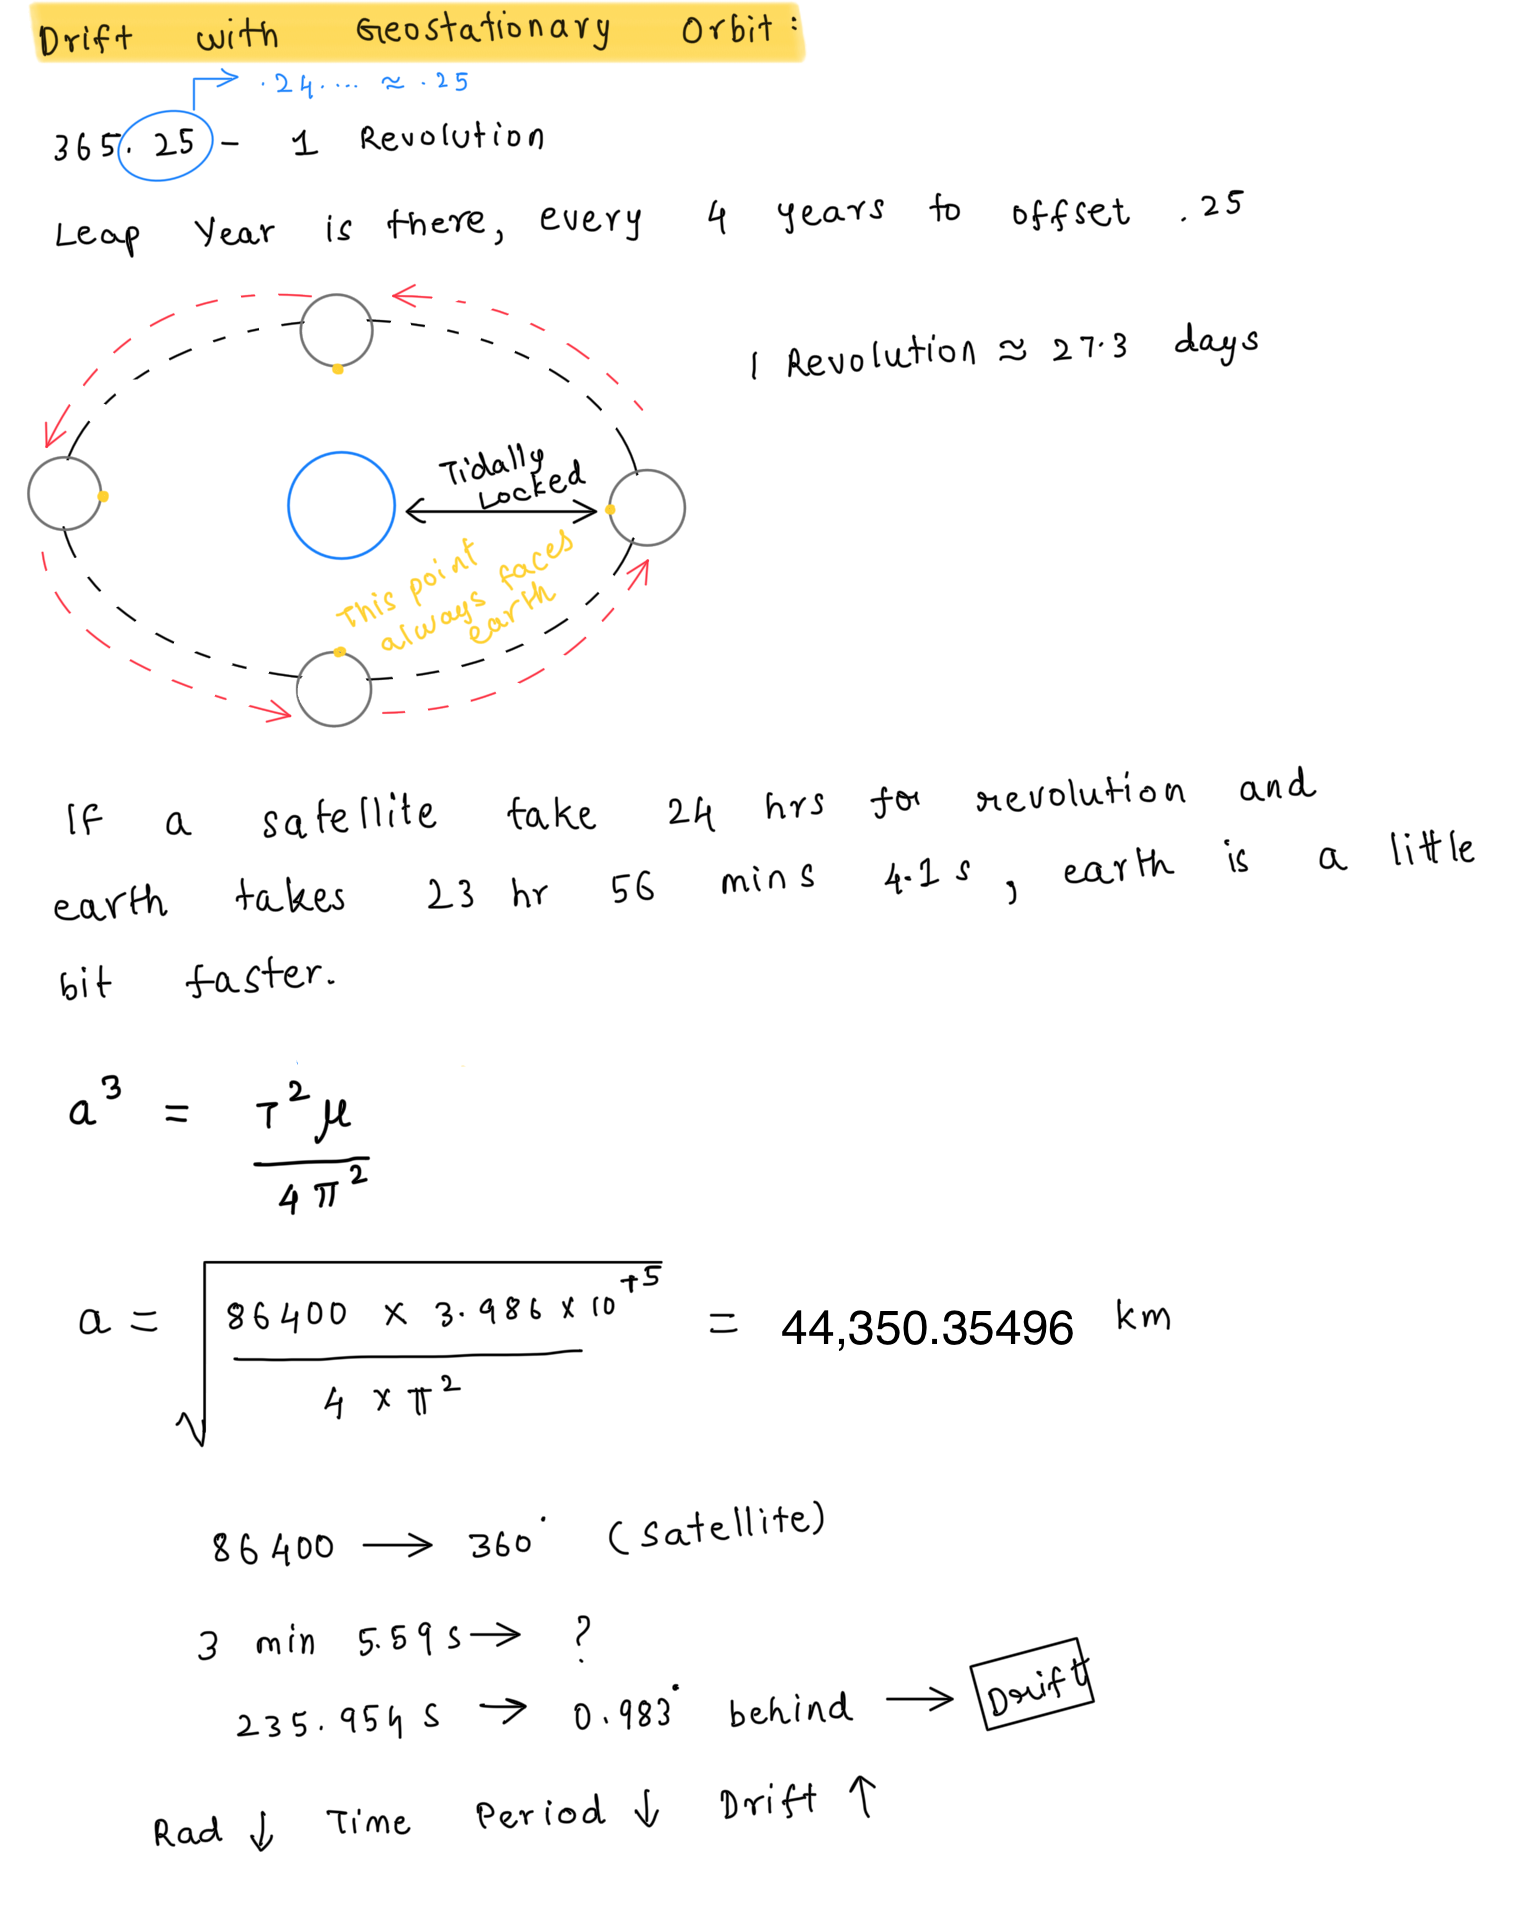 Drift with Geostationary Orbit:
→ .24.... ≈ .25
365.25 - 1 Revolution
Leap Year is there, every 4 years to offset .25
1 Revolution ≈ 27.3 days
Tidally
Locked
This point
always faces
earth
If a satellite take 24 hrs for revolution and
earth takes 23 hr 56 mins 4.1 s, earth is a little
bit faster.
a³ = T²μ / 4π²
a = √(86400 × 3.986 × 10⁺⁵ / 4 × π²) = 44,350.35496 km
86400 → 360° (satellite)
3 min 5.59 s → ?
235.954 s → 0.983° behind → Drift
Rad ↓ Time Period ↓ Drift ↑